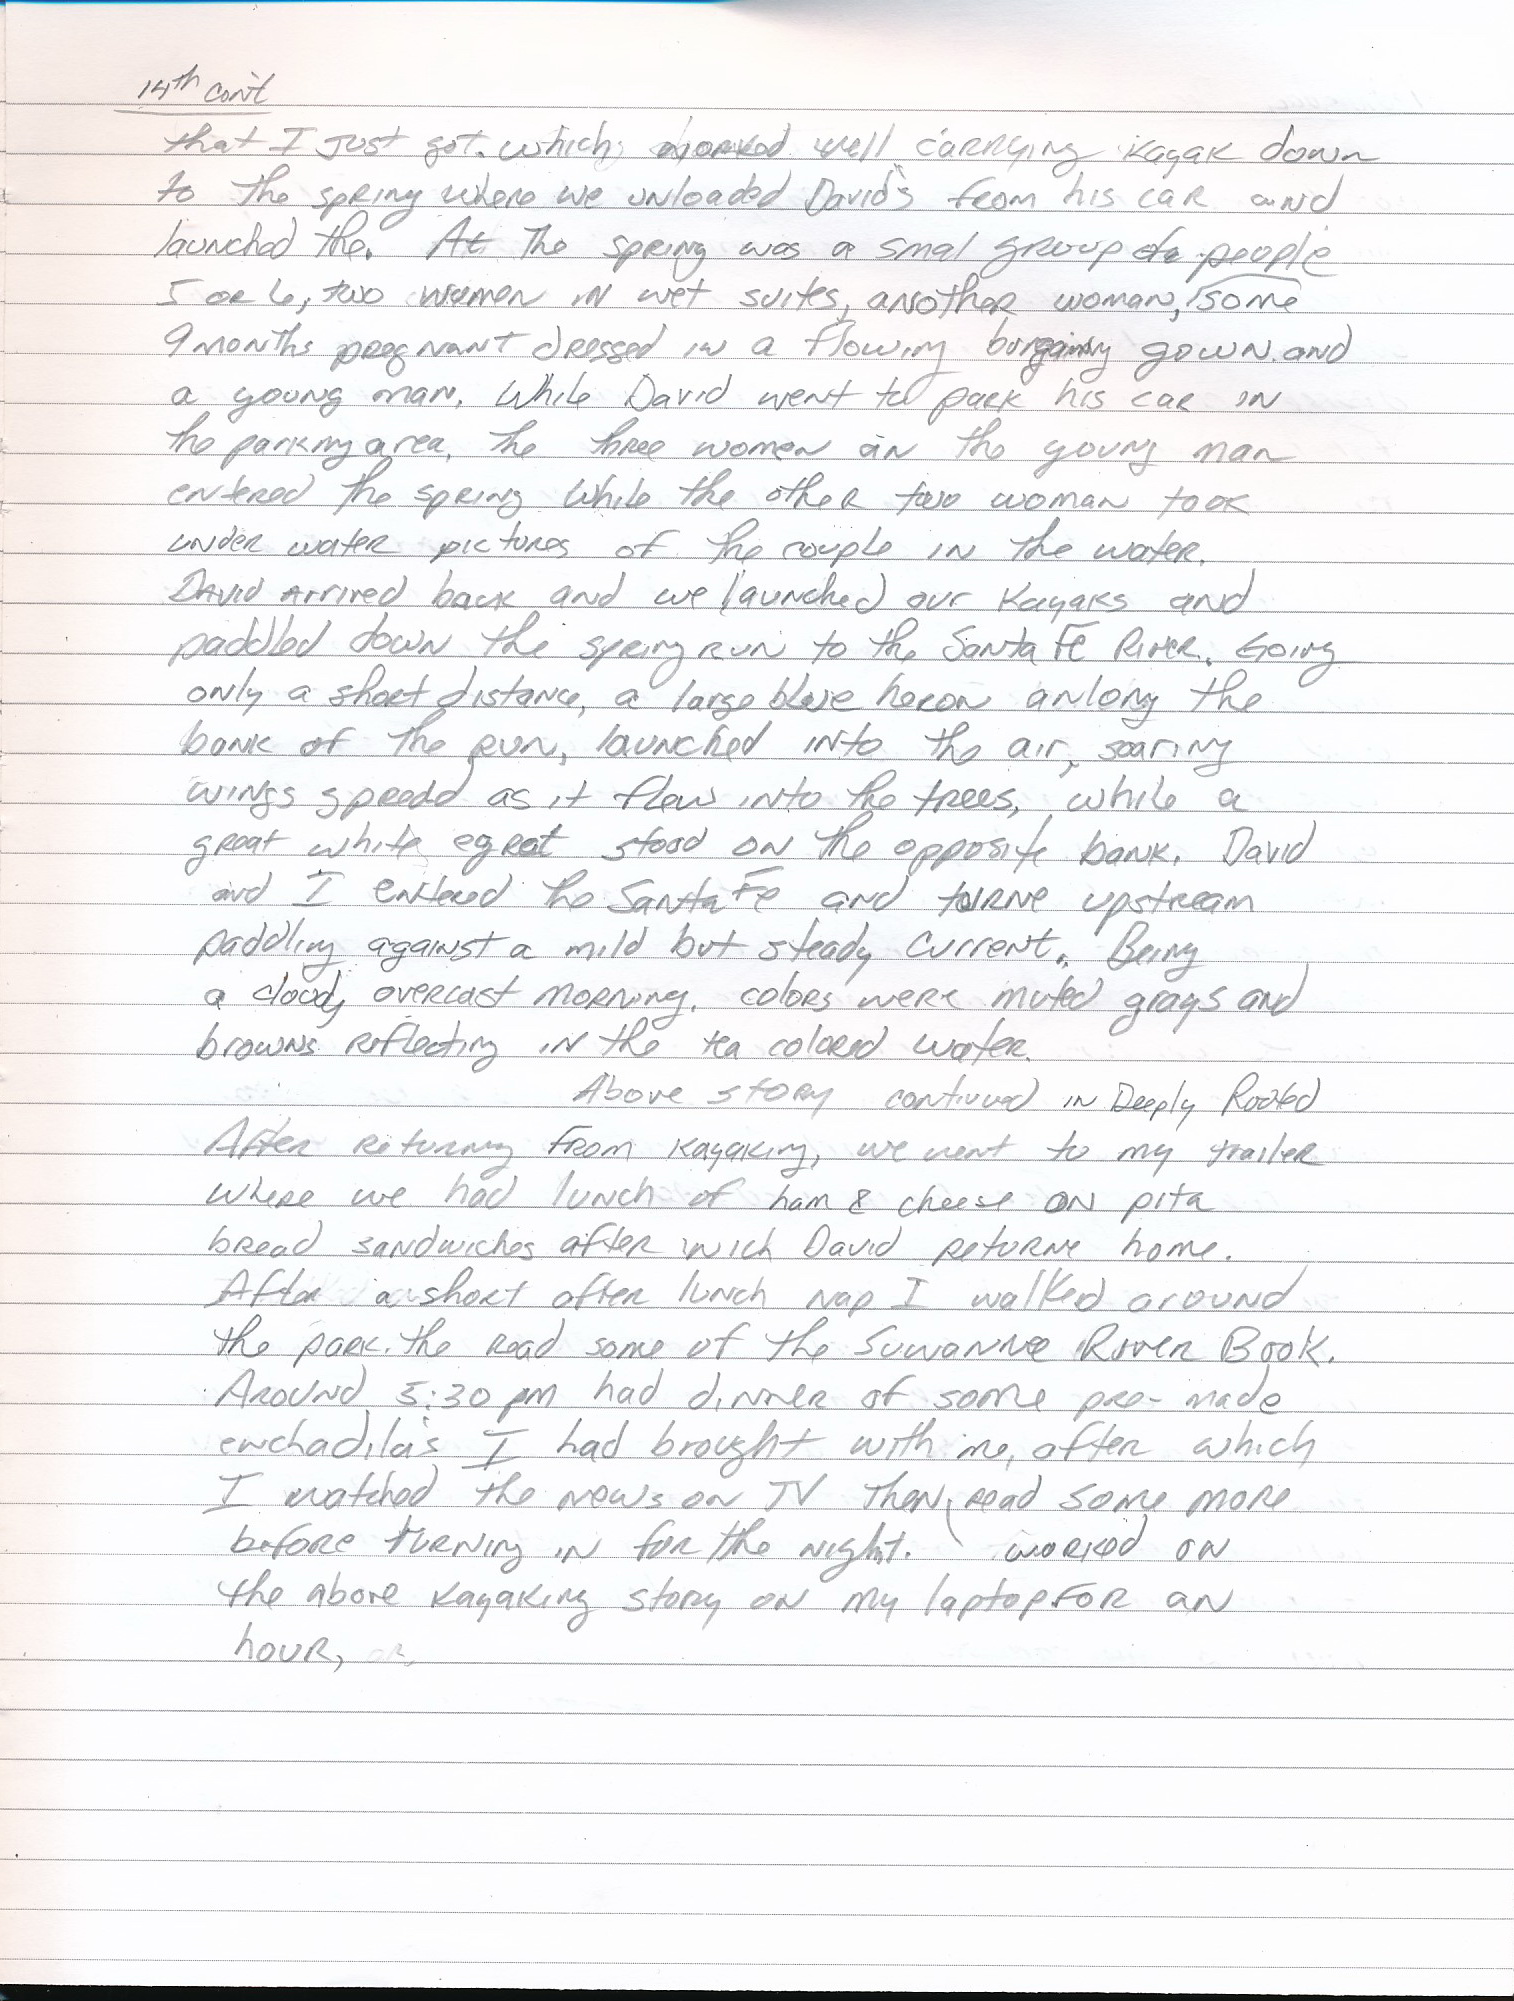 14th con't
that I just got. which worked well carrying kayak down
to the spring where we unloaded David's from his car and
launched the. At the spring was a smal group of people
5 or 6, two women in wet suites, another woman, some
9 months pregnant dressed in a flowing gown and
a young man. While David went to park his car in
the parking area, the three women an the young man
entered the spring while the other two woman took
under water pictures of the couple in the water.
David arrived back and we launched our kayaks and
paddled down the spring run to the Santa Fe River. Going
only a short distance, a large blue heron anlong the
bank of the run, launched into the air, soaring
wings spredd as it flew into the trees, while a
great white egret stood on the opposite bank. David
and I entered the Santa Fe and turne upstream
paddling against a mild but steady current. Being
a cloudy overcast morning. colors were muted grays and
browns reflecting in the tea colored water.
Above story continued in Deeply Rooted
After returning from kayaking, we went to my trailer
where we had lunch of ham & cheese on pita
bread sandwiches after wich David returne home.
After a short after lunch nap I walked around
the park. the read some of the Suwannee River Book.
Around 5:30 pm had dinner of some pre-made
enchadilas I had brought with me, after which
I watched the news on TV then read some more
before turning in for the night. ( worked on
the above kayaking story on my laptop for an
hour,